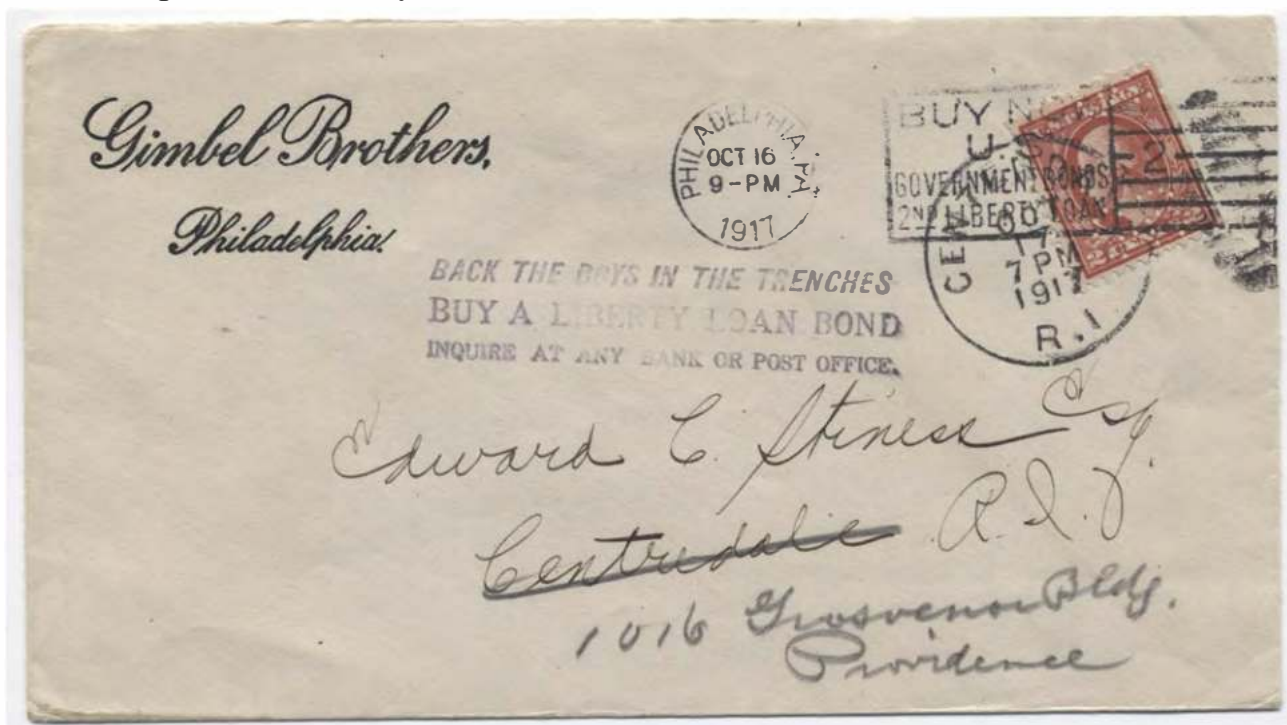 Gimbel Brothers,
Philadelphia
PHILADELPHIA, PA.
OCT 16
9-PM
1917
BUY
U
GOVERNMENT BONDS
2ND LIBERTY LOAN
2
R.I.
17
7 PM
1917
2 CENTS 2
BACK THE BOYS IN THE TRENCHES
BUY A LIBERTY LOAN BOND
INQUIRE AT ANY BANK OR POST OFFICE.
Edward C. Stiness Esq.
Centredale R.I.
1016 Grosvenor Bldg.
Providence